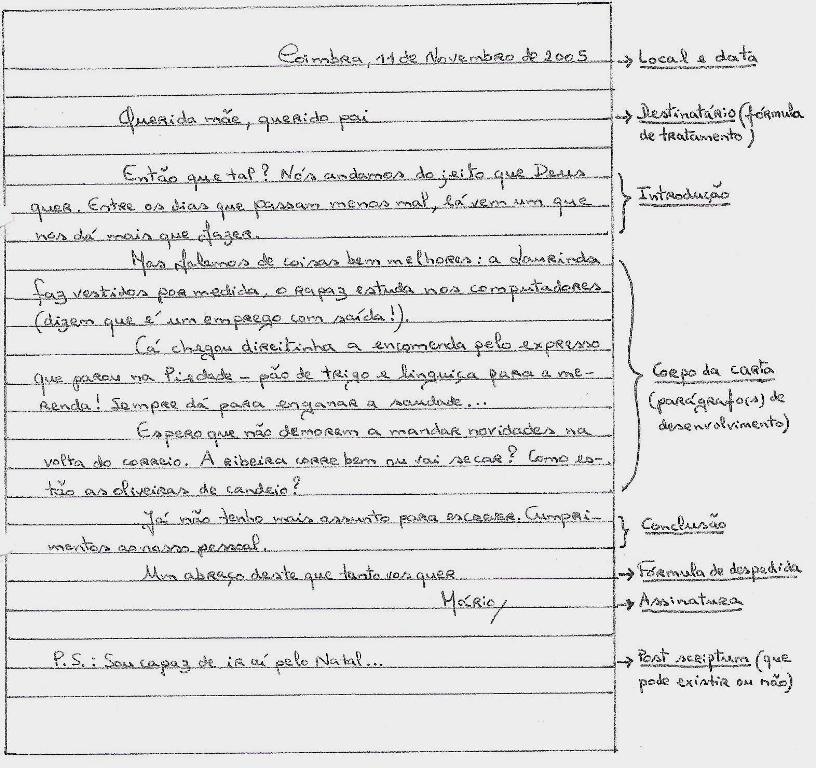 Coimbra, 11 de Novembro de 2005
→ Local e data
Querida mãe, querido pai
→ Destinatário (fórmula
de tratamento)
Então que tal? Nós andamos do jeito que Deus
quer. Entre os dias que passam menos mal, lá vem um que
nos dá mais que fazer.
Introdução
Mas falemos de coisas bem melhores: a Laurinda
faz vestidos por medida, o rapaz estuda nos computadores
(dizem que é um emprego com saída!).
Cá chegou direitinha a encomenda pelo expresso
que parou na Piedade - pão de trigo e linguiça para a me-
renda! Sempre dá para enganar a saudade...
Espero que não demorem a mandar novidades na
volta do correio. A ribeira corre bem ou vai secar? Como es-
tão as oliveiras de candeio?
Corpo da carta
(parágrafo(s) de
desenvolvimento)
Já não tenho mais assunto para escrever. Cumpri-
mentos ao nosso pessoal.
Conclusão
Um abraço deste que tanto vos quer
→ Fórmula de despedida
Mário
→ Assinatura
P.S.: Sou capaz de ir aí pelo Natal...
→ Post scriptum (que
pode existir ou não)